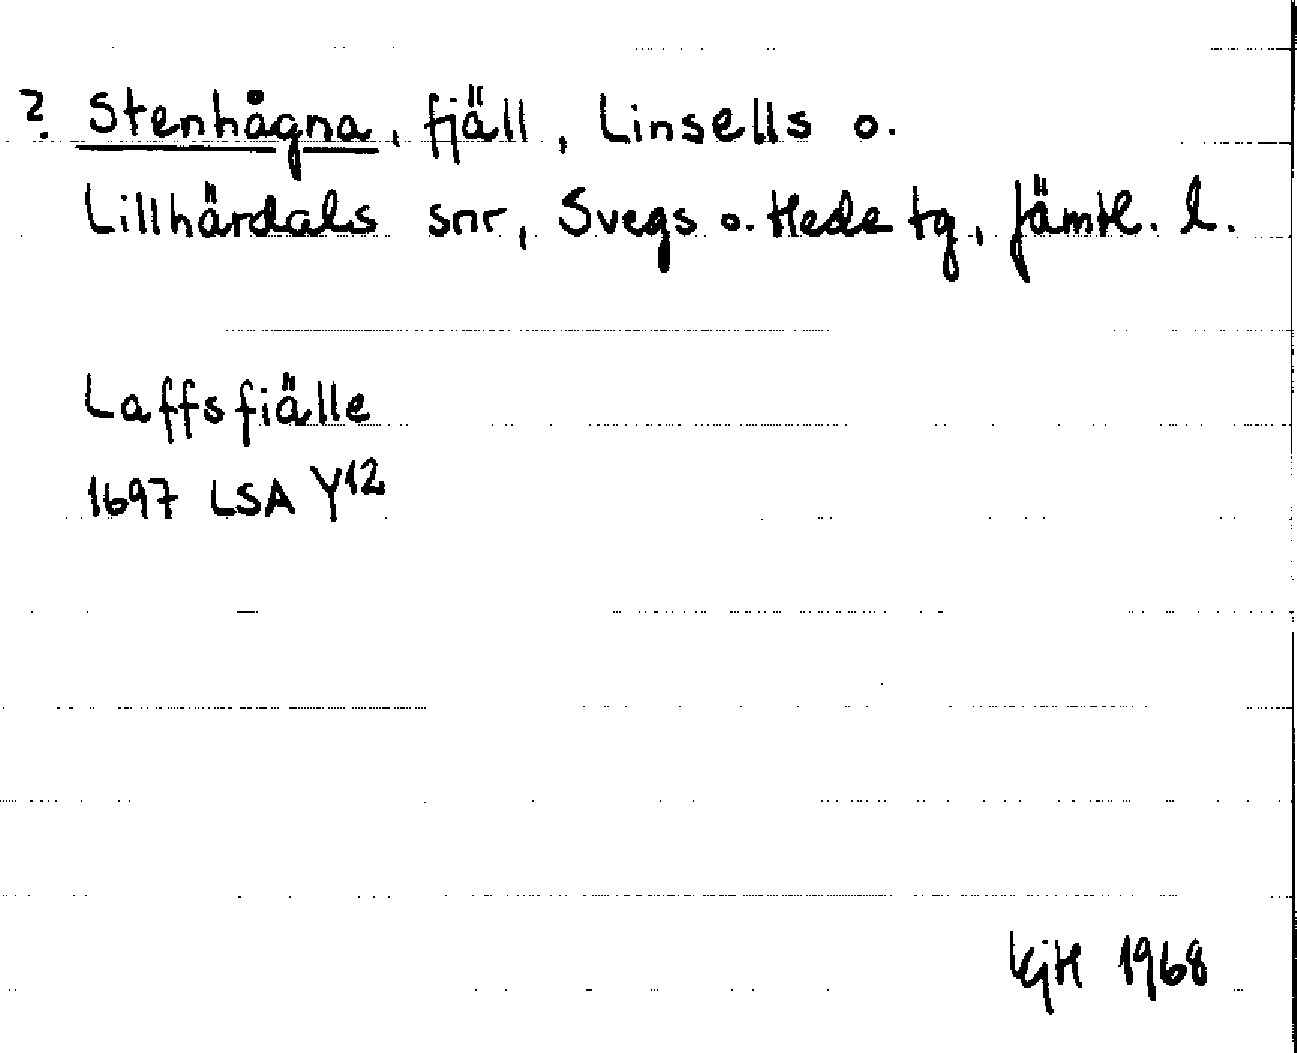 ? Stenhågna, fjäll, Linsells o.
Lillhärdals snr, Svegs o. Hede tg, Jämtl. l.
Laffsfiälle
1697 LSA Y12
KjH 1968